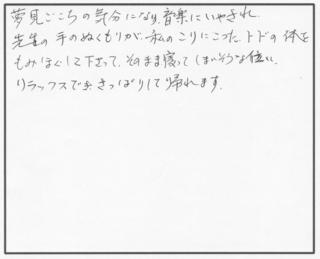 夢見ごこちの気分になり、音楽にいやされ、
先生の手のぬくもりが、私のこりにこった、トドの体を
もみほぐして下さって、そのまま寝ってしまいそうな位い、
リラックスでき、さっぱりして帰れます。